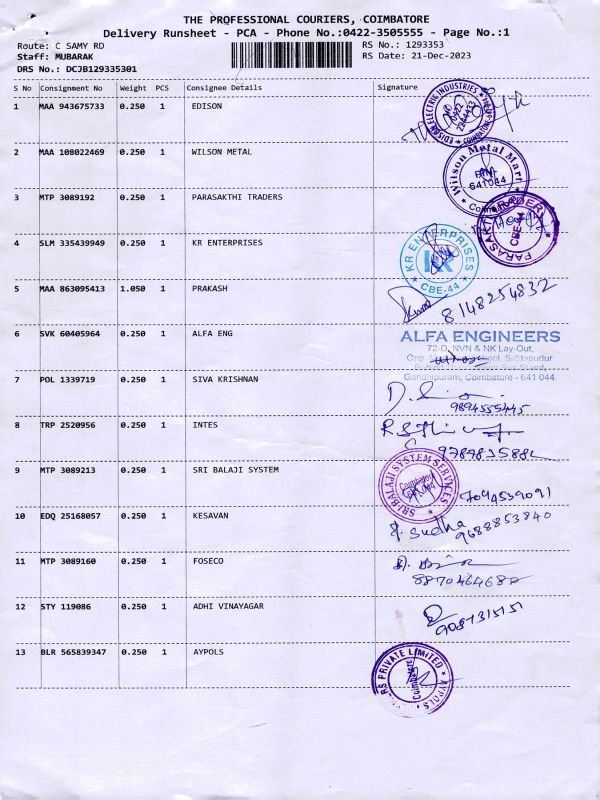 THE PROFESSIONAL COURIERS, COIMBATORE
Delivery Runsheet - PCA - Phone No.:0422-3505555 - Page No.:1
Route: C SAMY RD
RS No.: 1293353
Staff: MUBARAK
RS Date: 21-Dec-2023
DRS No.: DCJB129335301
S No Consignment No Weight PCS Consignee Details Signature
1 MAA 943675733 0.250 1 EDISON
EDISAN ELECTRIC INDUSTRIES
2 MAA 108022469 0.250 1 WILSON METAL
Wilson Metal Mart
641044
3 MTP 3089192 0.250 1 PARASAKTHI TRADERS
CBE-44
4 SLM 335439949 0.250 1 KR ENTERPRISES
KR ENTERPRISES
KR
CBE-44
5 MAA 863095413 1.050 1 PRAKASH
8148254832
6 SVK 60405964 0.250 1 ALFA ENG
ALFA ENGINEERS
72-D, NVN & NK Lay-Out,
Opp. School, Siddapudur
Gandhipuram, Coimbatore - 641 044.
7 POL 1339719 0.250 1 SIVA KRISHNAN
9894555445
8 TRP 2520956 0.250 1 INTES
9 MTP 3089213 0.250 1 SRI BALAJI SYSTEM
SRI BALAJI SYSTEM SERVICES
Coimbatore
7094539091
10 EDQ 25168057 0.250 1 KESAVAN
Sudha
9688853840
11 MTP 3089160 0.250 1 FOSECO
12 STY 119086 0.250 1 ADHI VINAYAGAR
13 BLR 565839347 0.250 1 AYPOLS
RS PRIVATE LIMITED
AYPOLS
Coimbatore